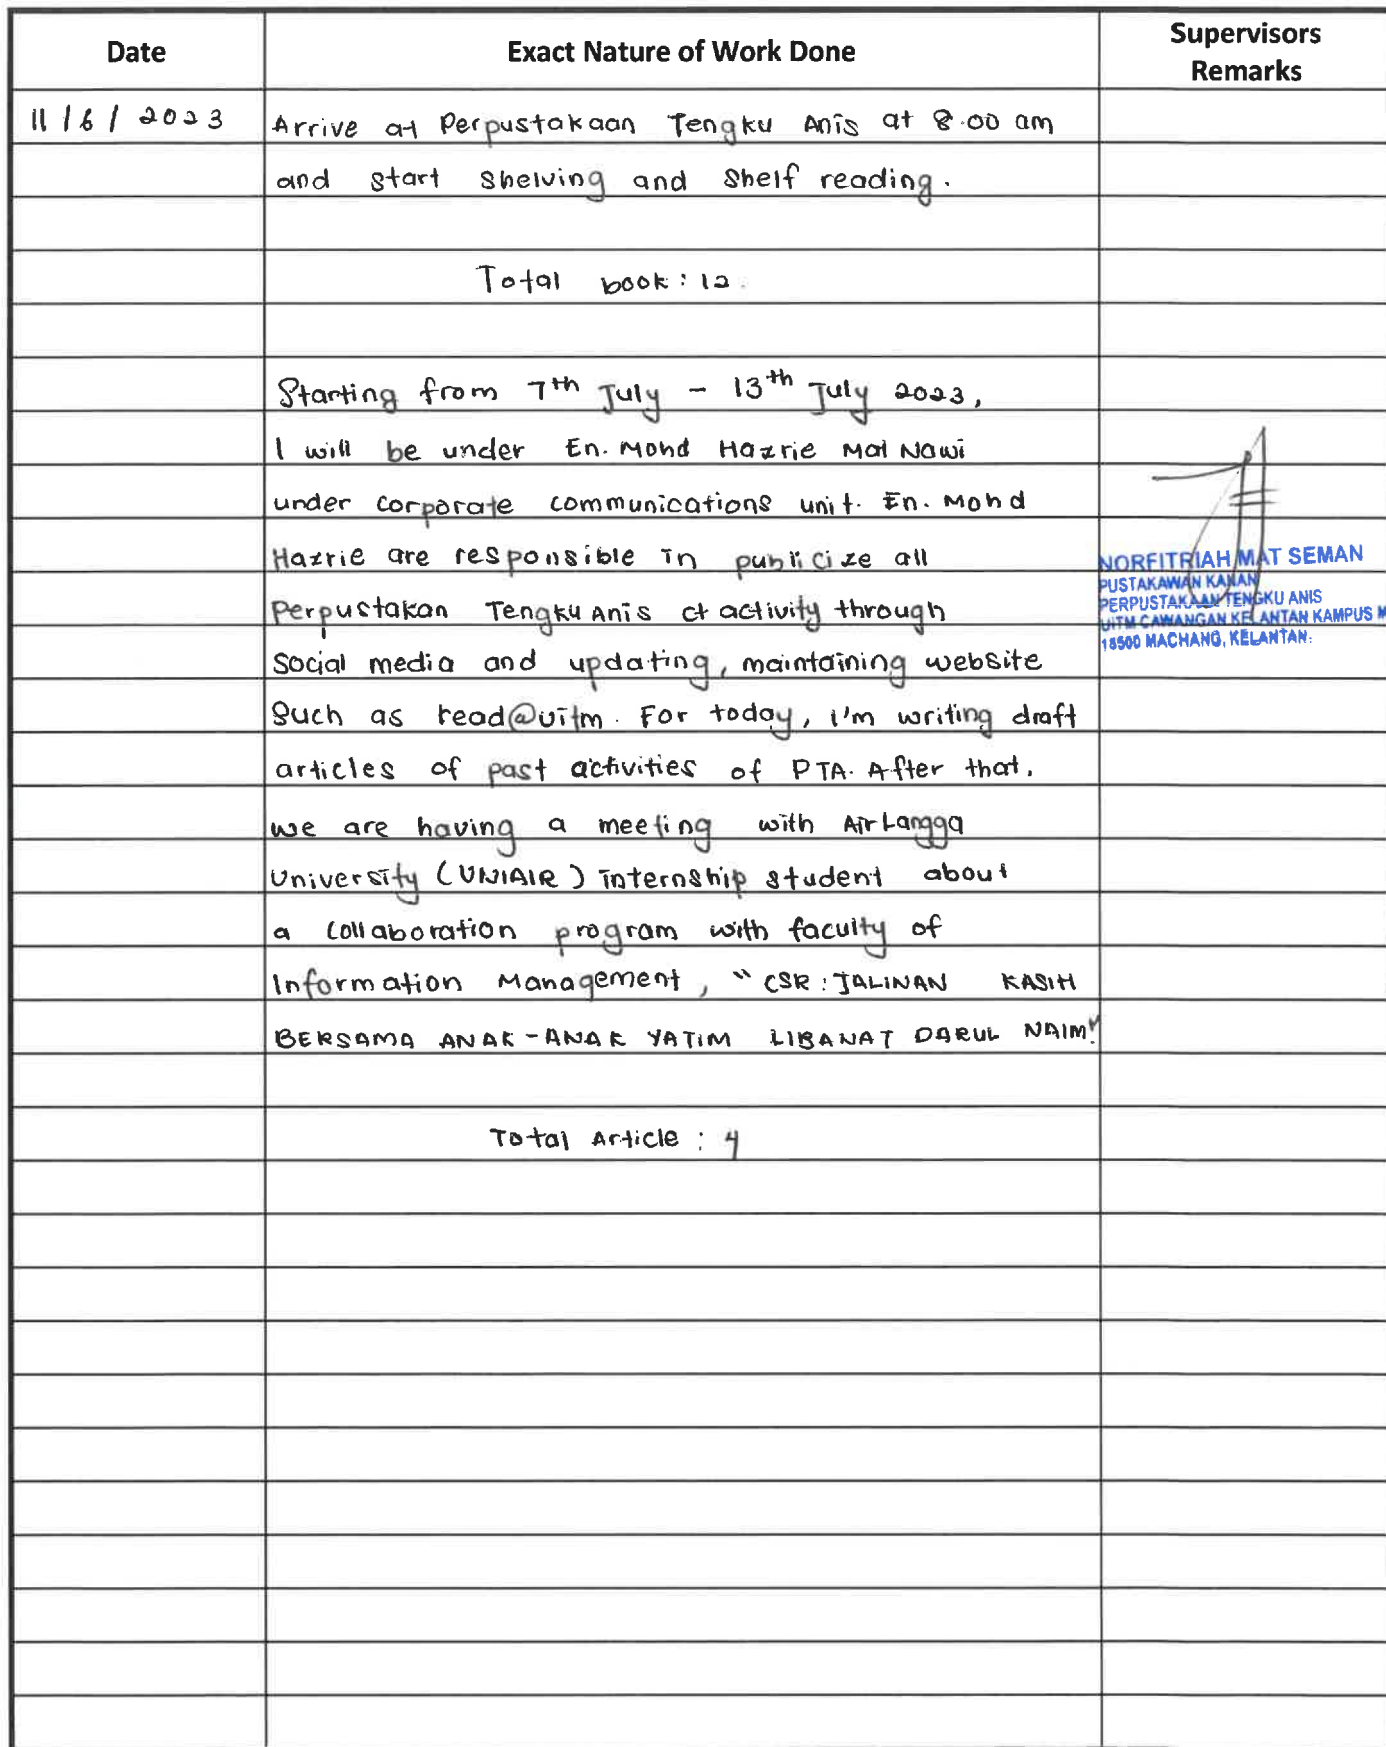 Date
Exact Nature of Work Done
Supervisors
Remarks
11/6/2023
Arrive at Perpustakaan Tengku Anis at 8.00 am
and start Shelving and Shelf reading.
Total book: 12.
Starting from 7th July - 13th July 2023,
I will be under En. Mohd Hazrie Mat Nawi
under corporate communications unit. En. Mohd
Hazrie are responsible in publicize all
Perpustakan Tengku Anis activity through
Social media and updating, maintaining website
Such as read@uitm. For today, I'm writing draft
articles of past activities of PTA. After that,
we are having a meeting with AirLangga
University (UNIAIR) internship student about
a collaboration program with faculty of
Information Management, "CSR: JALINAN KASIH
BERSAMA ANAK-ANAK YATIM LIBANAT DARUL NAIM"
Total Article: 4
NORFITRIAH MAT SEMAN
PUSTAKAWAN KANAN
PERPUSTAKAAN TENGKU ANIS
UITM CAWANGAN KELANTAN KAMPUS M
18500 MACHANG, KELANTAN.